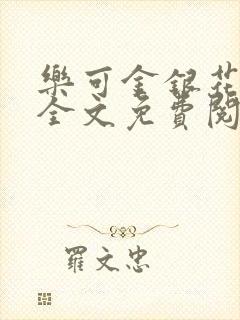 樂可金銀花
全文免費閱
羅文忠